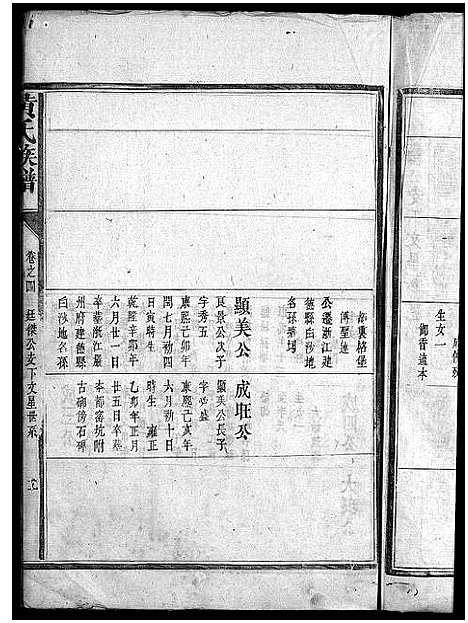 生女一
卸晋迪本
都裏格堡
傅聖進
公遷浙江建
德縣白沙地
名孫𡋾塆
顯美公
良景公次子
字秀五
康熙己卯年
閏七月初四
日寅時生
乾隆辛卯年
六月廿一日
卒葬浙江嚴
州府建德縣
白沙地名孫
成旺公
顯美公長子
康熙己亥年
六月初十日
時生 雍正
乙卯年正月
廿五日卒葬
本都窑坑附
古砌磅石碑
黄氏族譜
卷之四
廷傑公支下文星世系